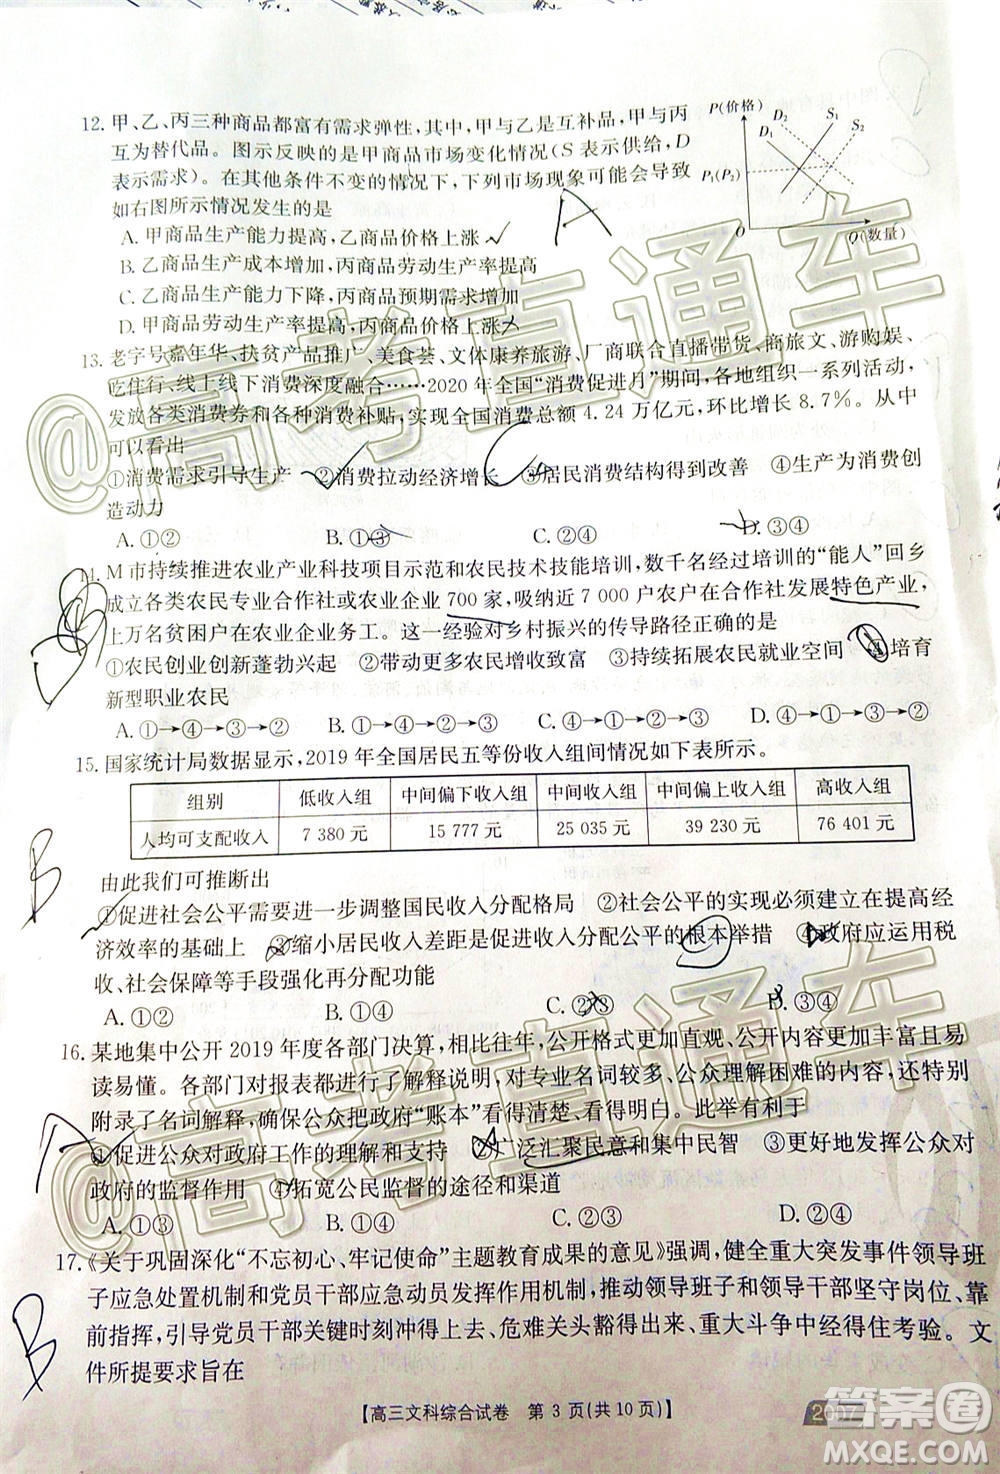 12. 甲、乙、丙三种商品都富有需求弹性,其中,甲与乙是互补品,丙与乙
互为替代品。图示反映的是甲商品市场变化情况(S 表示供给,D
表示需求)。在其他条件不变的情况下,下列市场现象可能会导致
如右图所示情况发生的是
P(价格)
D₂
D₁
S₁
S₂
P₁(P₂)
O
Q(数量)
A. 甲商品生产能力提高,乙商品价格上涨
B. 乙商品生产成本增加,丙商品劳动生产率提高
C. 乙商品生产能力下降,丙商品预期需求增加
D. 甲商品劳动生产率提高,丙商品价格上涨
13. 老字号嘉年华、扶贫产品推广、美食荟、文体康养旅游、厂商联合直播带货、商旅文、游购娱、
吃住行、线上线下消费深度融合……2020 年全国“消费促进月”期间,各地组织一系列活动,
发放各类消费券和各种消费补贴,实现全国消费总额 4.24 万亿元,环比增长 8.7%。从中
可以看出
①消费需求引导生产 ②消费拉动经济增长 ③居民消费结构得到改善 ④生产为消费创
造动力
A. ①② B. ①③ C. ②④ D. ③④
14. M 市持续推进农业产业科技项目示范和农民技术技能培训,数千名经过培训的“能人”回乡
成立各类农民专业合作社或农业企业 700 家,吸纳近 7 000 户农户在合作社发展特色产业,
上万名贫困户在农业企业务工。这一经验对乡村振兴的传导路径正确的是
①农民创业创新蓬勃兴起 ②带动更多农民增收致富 ③持续拓展农民就业空间 ④培育
新型职业农民
A. ①→④→③→② B. ①→④→②→③ C. ④→①→②→③ D. ④→①→③→②
15. 国家统计局数据显示,2019 年全国居民五等份收入组间情况如下表所示。
组别 低收入组 中间偏下收入组 中间收入组 中间偏上收入组 高收入组
人均可支配收入 7 380 元 15 777 元 25 035 元 39 230 元 76 401 元
由此我们可推断出
①促进社会公平需要进一步调整国民收入分配格局 ②社会公平的实现必须建立在提高经
济效率的基础上 ③缩小居民收入差距是促进收入分配公平的根本举措 ④政府应运用税
收、社会保障等手段强化再分配功能
A. ①② B. ①④ C. ②③ D. ③④
16. 某地集中公开 2019 年度各部门决算,相比往年,公开格式更加直观、公开内容更加丰富且易
读易懂。各部门对报表都进行了解释说明,对专业名词较多、公众理解困难的内容,还特别
附录了名词解释,确保公众把政府“账本”看得清楚、看得明白。此举有利于
①促进公众对政府工作的理解和支持 ②广泛汇聚民意和集中民智 ③更好地发挥公众对
政府的监督作用 ④拓宽公民监督的途径和渠道
A. ①③ B. ①④ C. ②③ D. ②④
17.《关于巩固深化“不忘初心、牢记使命”主题教育成果的意见》强调,健全重大突发事件领导班
子应急处置机制和党员干部应急动员发挥作用机制,推动领导班子和领导干部坚守岗位、靠
前指挥,引导党员干部关键时刻冲得上去、危难关头豁得出来、重大斗争中经得住考验。文
件所提要求旨在
【高三文科综合试卷 第 3 页(共 10 页)】
2007
@高考直通车
@高考直通车
答案圈
MXQE.COM
A
B
A
B